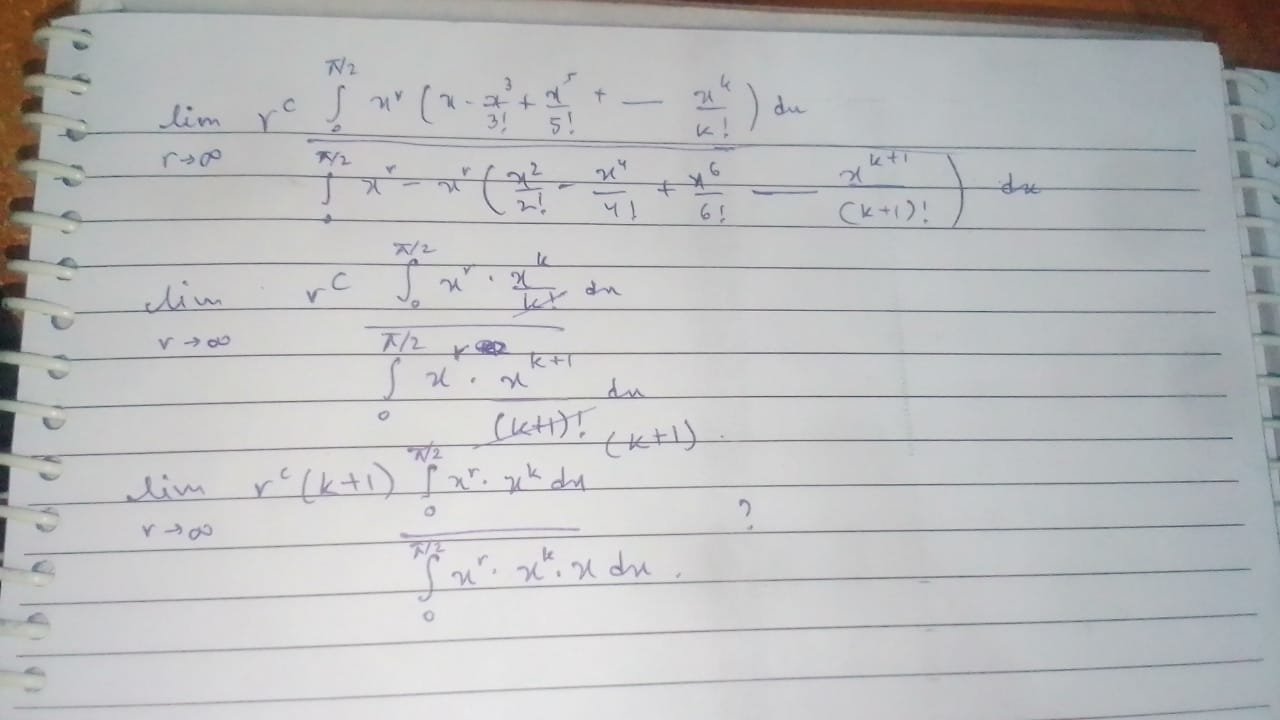 lim r→∞ r^c ∫_0^{π/2} x^r (x - x^3/3! + x^5/5! + — x^k/k!) dx
∫_0^{π/2} x^r - x^r (x^2/2! - x^4/4! + x^6/6! — x^{k+1}/(k+1)!) dx
lim r→∞ r^c ∫_0^{π/2} x^r · x^k/k! dx
∫_0^{π/2} x^r · x^{k+1}/(k+1)! dx (k+1)
lim r→∞ r^c (k+1) ∫_0^{π/2} x^r · x^k dx ?
∫_0^{π/2} x^r · x^k · x dx .